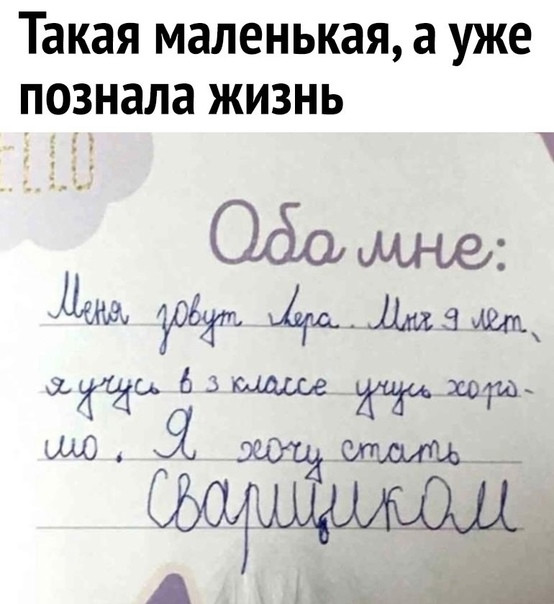 Такая маленькая, а уже
познала жизнь
ELLO
Обо мне:
Меня зовут Лера. Мня 9 лет,
я учусь в 3 классе учусь хоро-
шо. Я хочу стать
Сварщиком